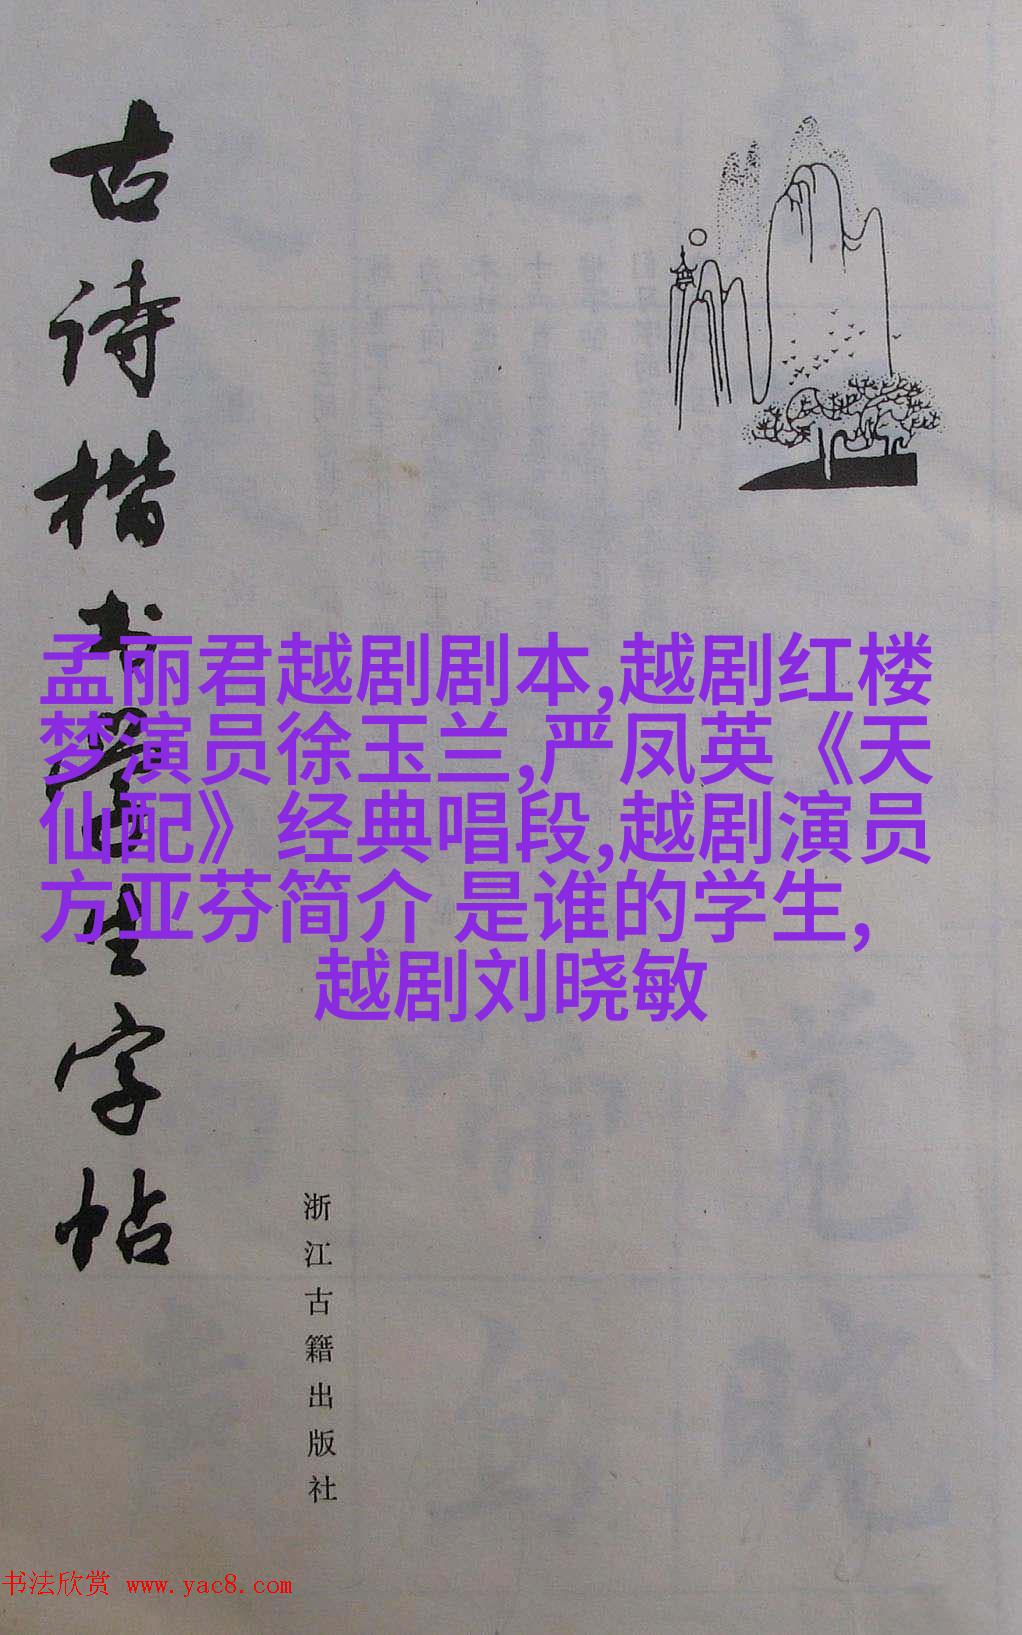 古诗楷书学生字帖
孟丽君越剧剧本,越剧红楼
梦演员徐玉兰,严凤英《天
仙配》经典唱段,越剧演员
方亚芬简介 是谁的学生,
越剧刘晓敏
浙江古籍出版社
书法欣赏 www.yac8.com